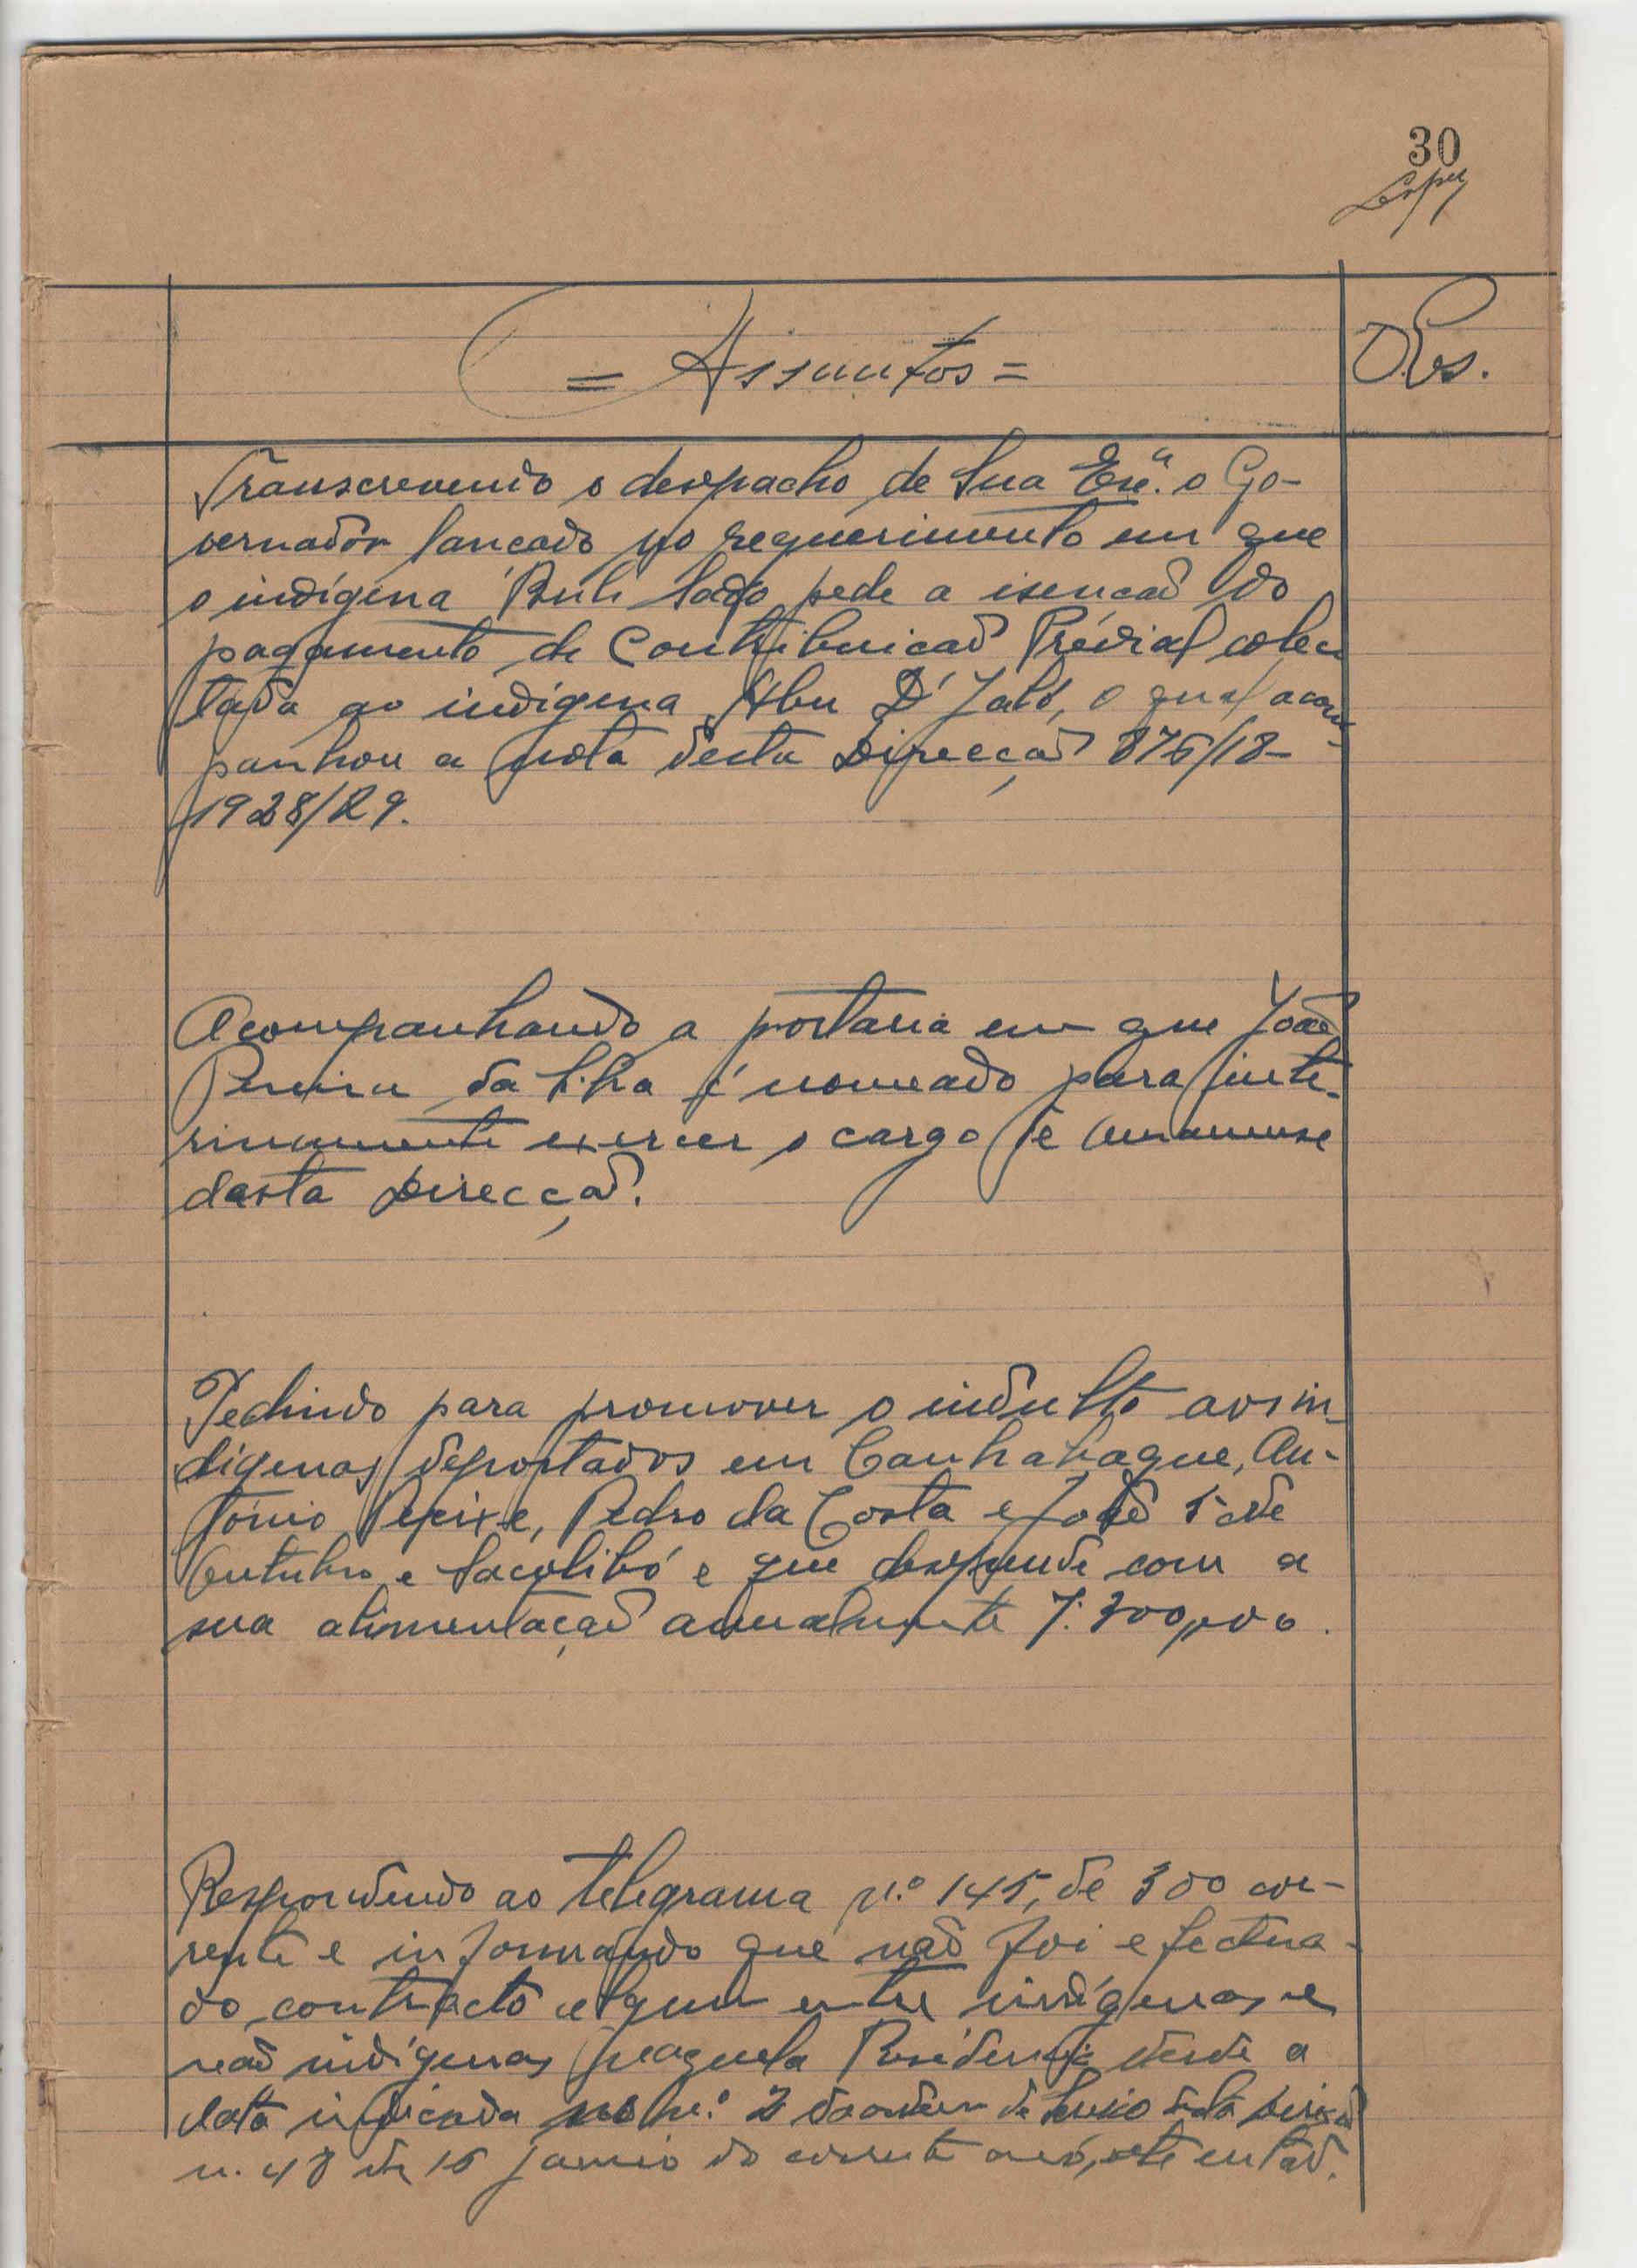 30
= Assuntos =
Obs.
Transcrevendo o despacho de Sua Exª. o Go-
vernador lançado no requerimento em que
o indígena pede a isencão do
pagamento de Contribuicão Prédial colec
tada ao indigena Abu D'Jaló, o qual acom-
panhou a nota desta Direcção 876/18-
1928/29.
Acompanhando a portaria em que João
Pereira da Silva é nomeado para inte-
rinamente exercer o cargo de amanuense
desta Direcção.
Pedindo para promover o indulto aos in-
digenas deportados em Canhabaque, An-
tónio Peixe, Pedro da Costa e 5 de
Outubro e e que despende com a
sua alimentação anualmente 7.300,00.
Respondendo ao telegrama n.º 145, de 3 do cor-
rente e informando que não foi efectua-
do contracto algum entre indígenas e
não indígenas naquela Residencia desde a
data indicada no n.º 2 da ordem de serviço desta Direcção
n. 48 de 15 Janeiro do corrente ano, até então.